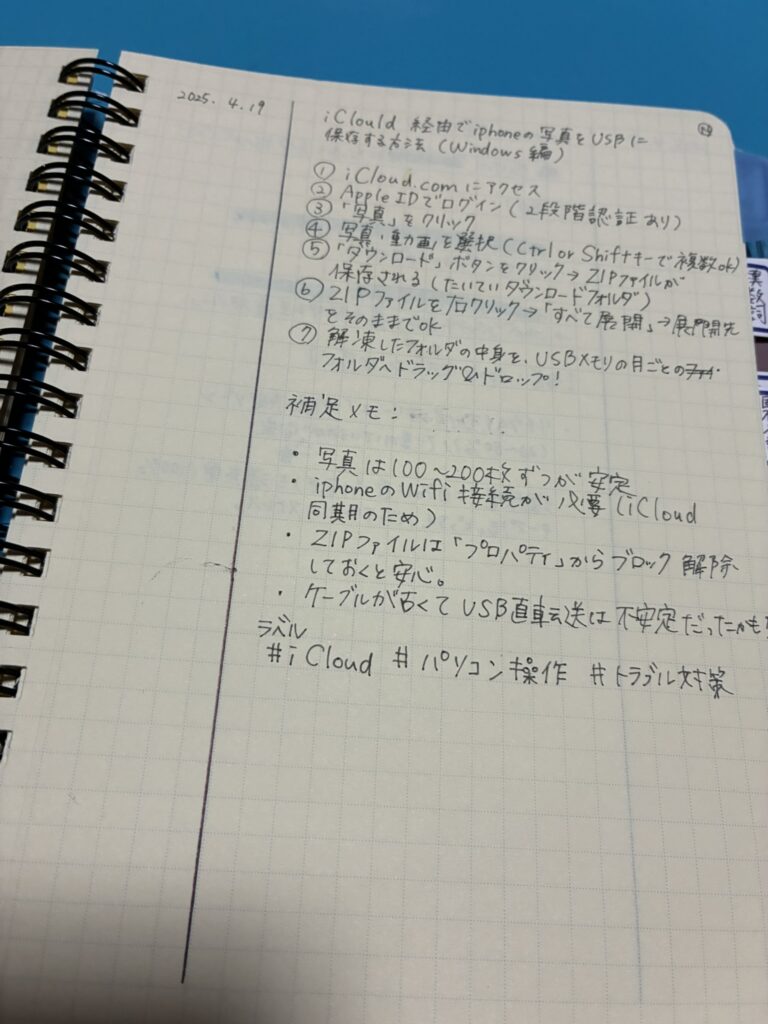 2025.4.19
iClould 経由でiphoneの写真をUSBに
保存する方法（Windows編）
① iCloud.comにアクセス
② Apple IDでログイン（2段階認証あり）
③ 「写真」をクリック
④ 写真・動画を選択（Ctrl or Shiftキーで複数ok）
⑤ 「ダウンロード」ボタンをクリック→ZIPファイルが
保存される（たいていダウンロードフォルダ）
⑥ ZIPファイルを右クリック→「すべて展開」→展開先
とそのままでok
⑦ 解凍したフォルダの中身を、USBメモリの月ごとの
フォルダへドラッグ&ドロップ！
補足メモ：
・写真は100〜200枚ずつが安定
・iphoneのWifi接続が必要（iCloud
同期のため）
・ZIPファイルは「プロパティ」からブロック解除
しておくと安心。
・ケーブルが古くてUSB直転送は不安定だったかも
ラベル
#iCloud #パソコン操作 #トラブル対策